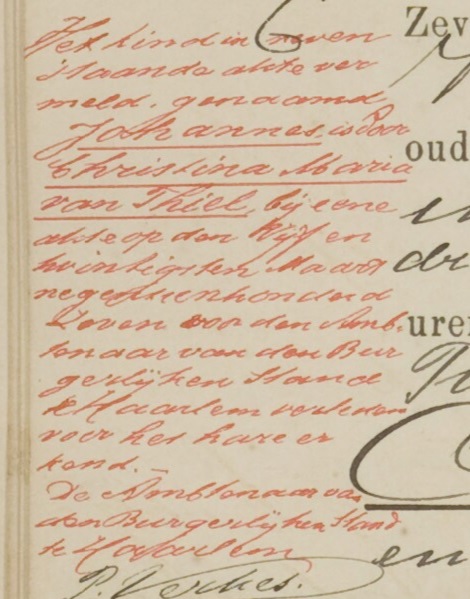 Het kind in neven
staande akte ver
meld, genaamd
Johannes, is door
Christina Maria
van Thiel, bij eene
akte op den Vijf en
twintigsten Maart
negentienhonderd
Zeven voor den Amb-
tenaar van den Bur
gerlijken Stand
te Haarlem verleden
voor het hare er
kend.-
De Ambtenaar van
den Burgerlijken Stand
te Haarlem
P. Verkes.
Zev
oud
en
uren
en